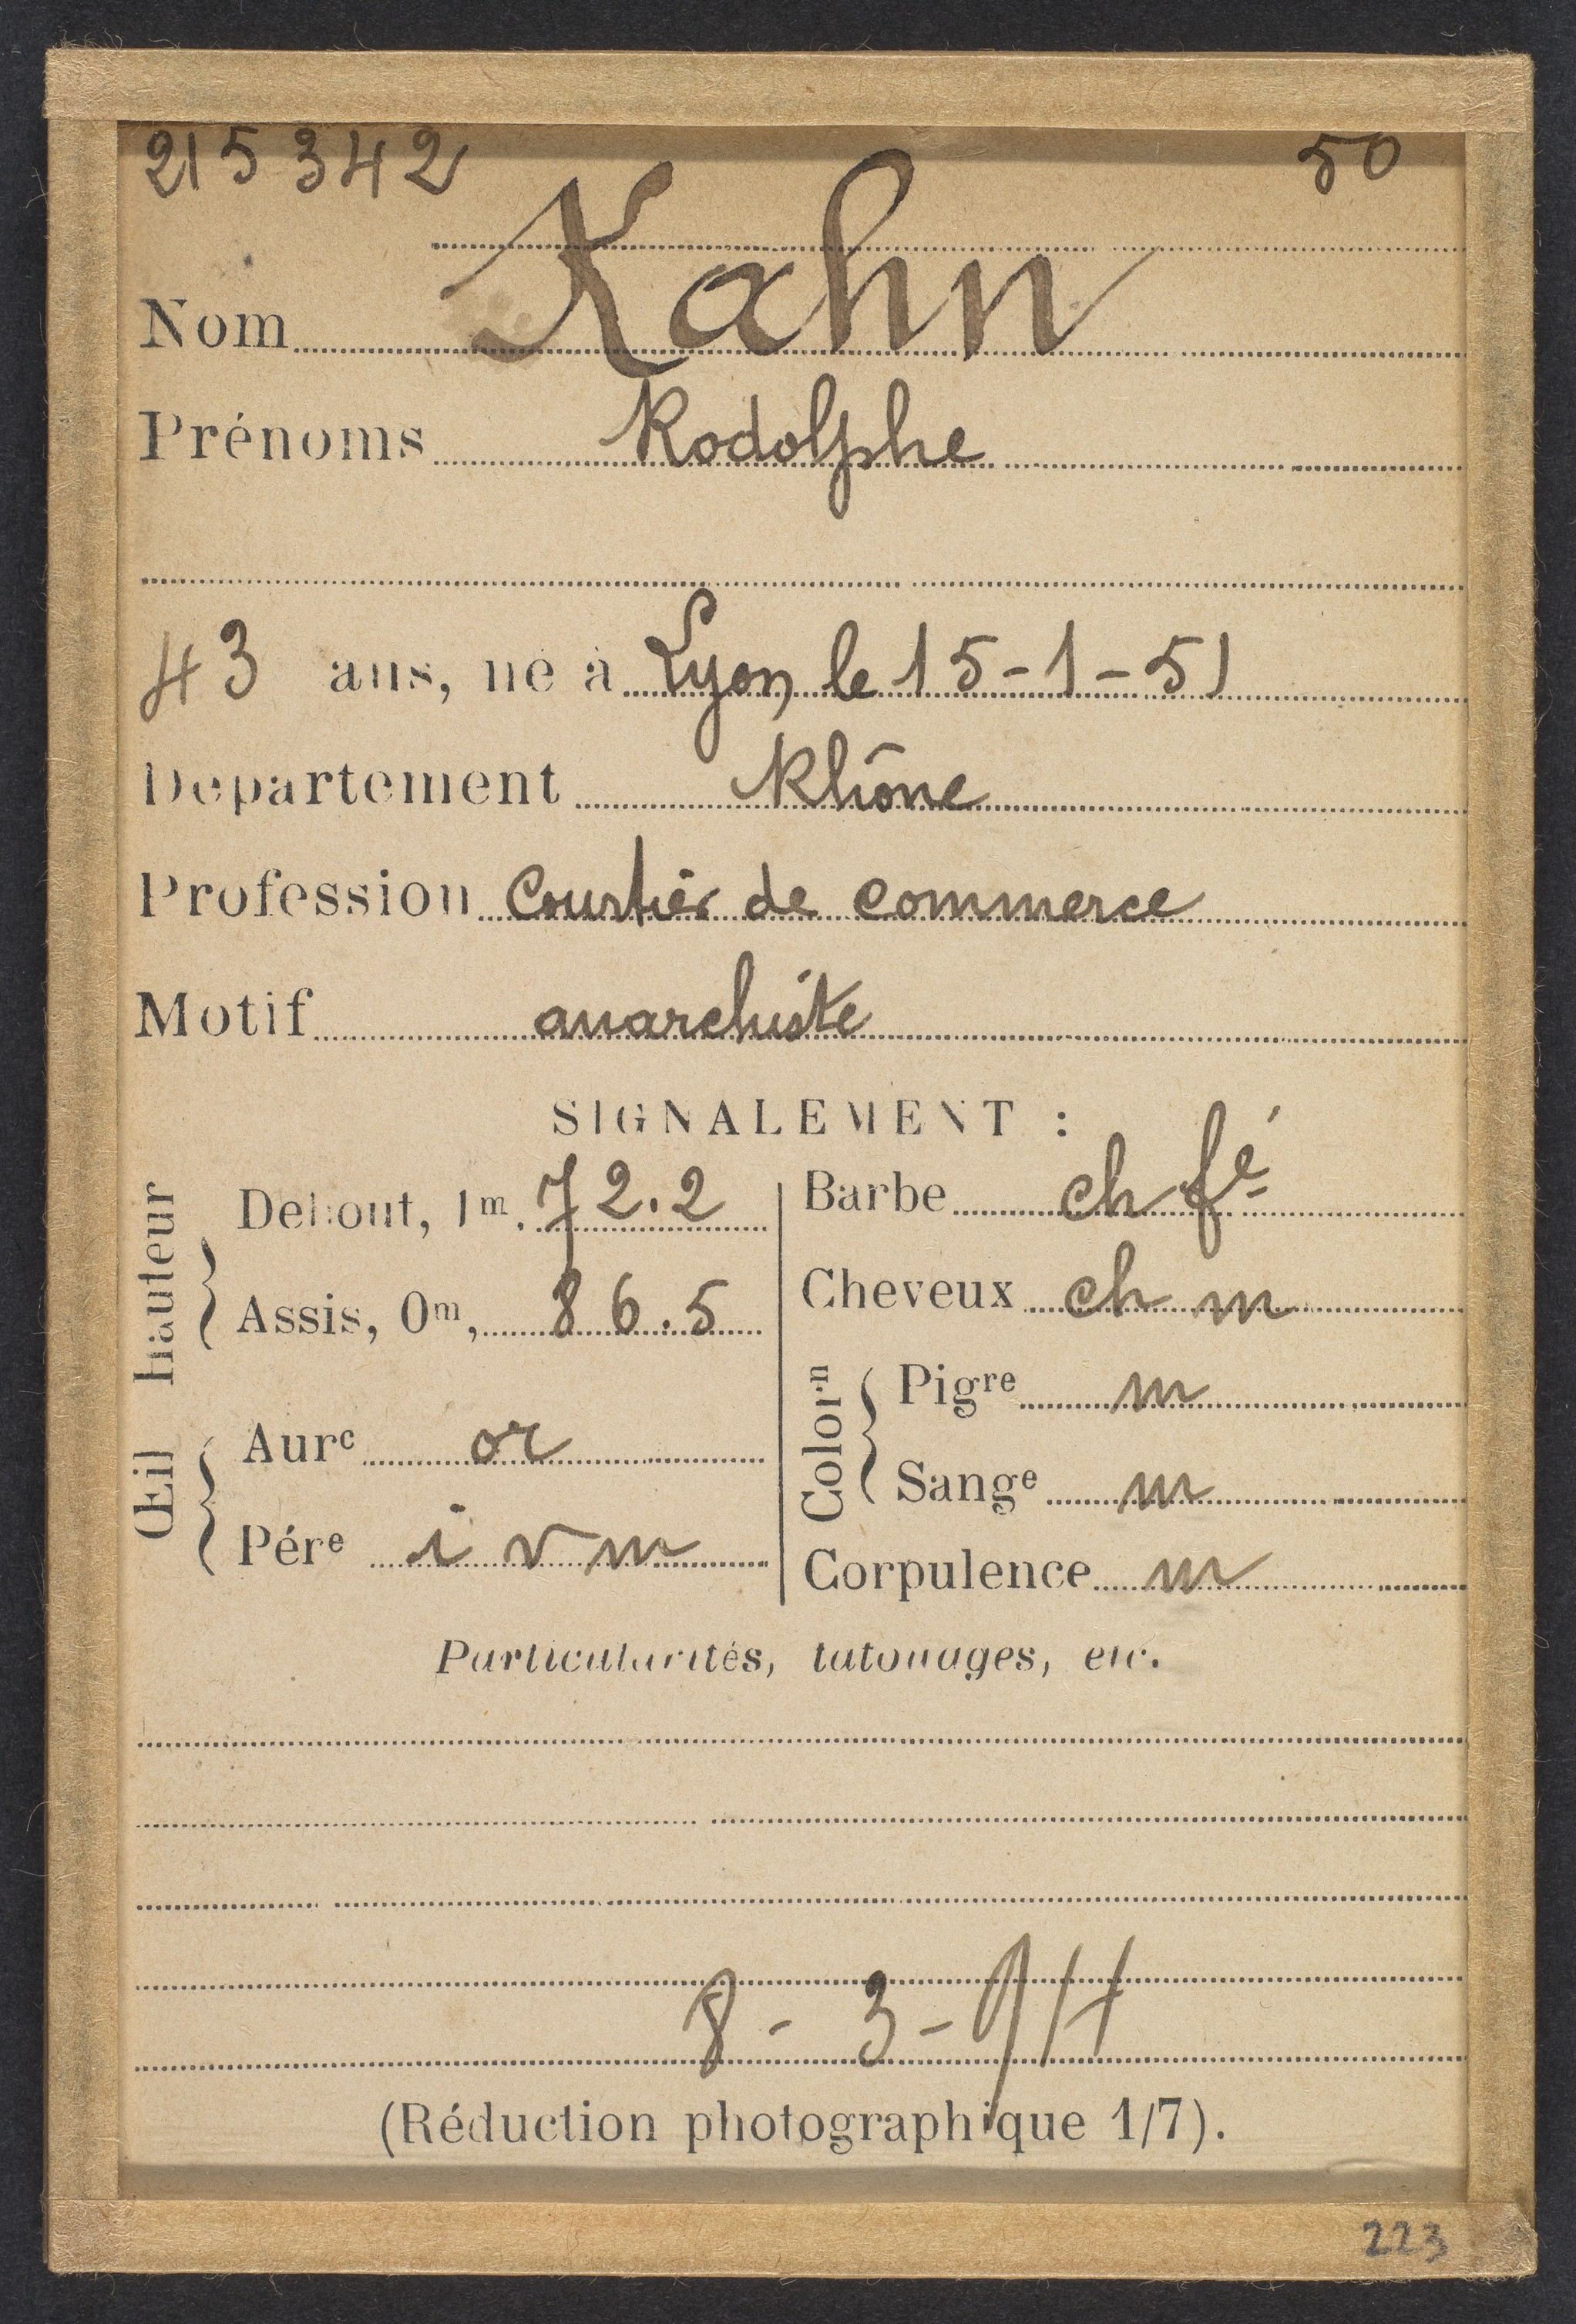 215342 50
Nom Kahn
Prénoms Rodolphe
43 ans, né à Lyon le 15-1-51
Département Rhône
Profession Courtier de commerce
Motif anarchiste
SIGNALEMENT :
Hauteur
Debout, 1m. 72.2
Assis, 0m, 86.5
Œil
Aurᵉ or
Pérᵉ i v m
Barbe ch fé
Cheveux ch m
Colorⁿ
Pigʳᵉ m
Sangᵉ m
Corpulence m
Particularités, tatouages, etc.
8-3-94
(Réduction photographique 1/7).
223